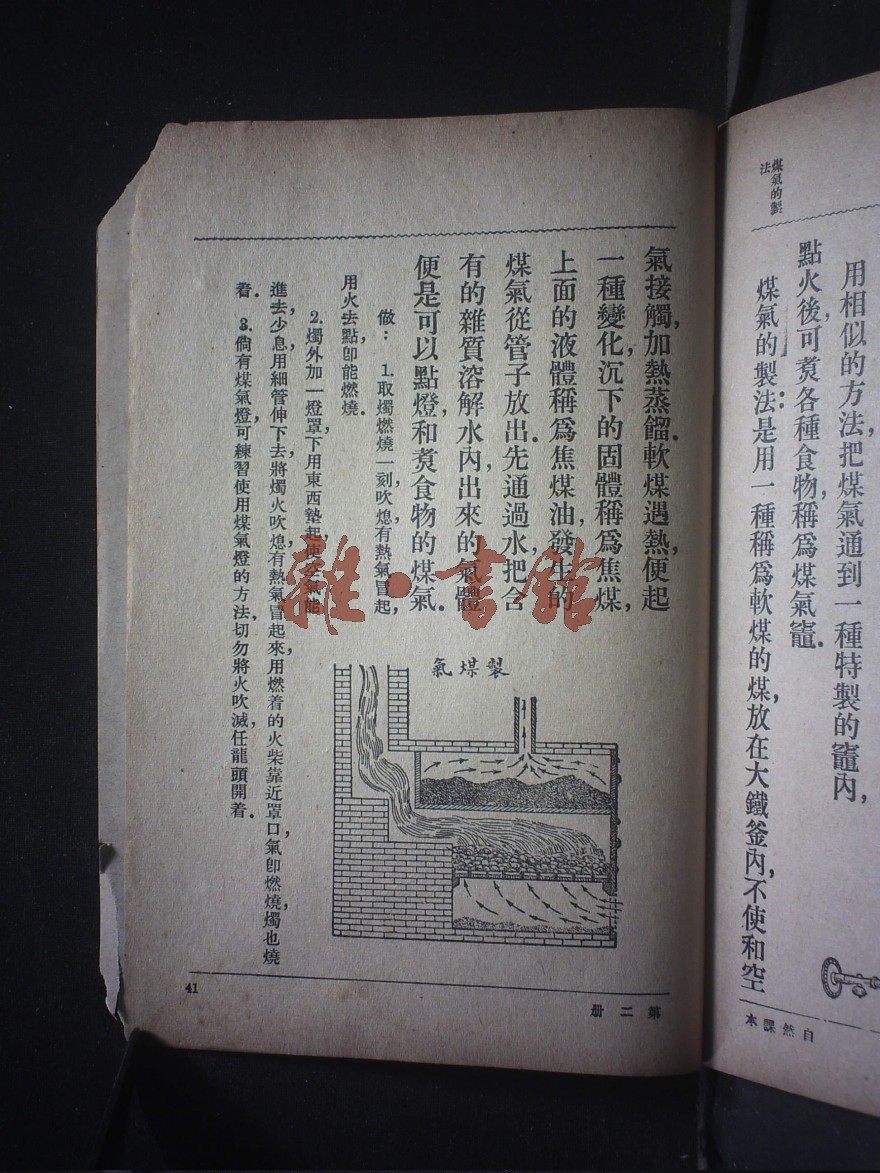 煤氣的製
法
用相似的方法,把煤氣通到一種特製的竈內,
點火後,可煑各種食物,稱爲煤氣竈.
煤氣的製法:是用一種稱爲軟煤的煤,放在大鐵釜內,不使和空
自然課本
氣接觸,加熱蒸餾.軟煤遇熱,便起
一種變化,沉下的固體稱爲焦煤,
上面的液體稱爲焦煤油,發生的
煤氣從管子放出.先通過水,把含
有的雜質溶解水內,出來的氣體
便是可以點燈,和煑食物的煤氣.
做: 1.取燭燃燒一刻,吹熄,有熱氣冒起,
用火去點,卽能燃燒.
2.燭外加一燈罩,下用東西墊起,使空氣能
進去.少息,用細管伸下去,將燭火吹熄,有熱氣冒起來,用燃着的火柴靠近罩口,氣卽燃燒,燭也燒
着.
3.倘有煤氣燈,可練習使用煤氣燈的方法.切勿將火吹滅,任龍頭開着.
製煤氣
第二册
41
雜·書館